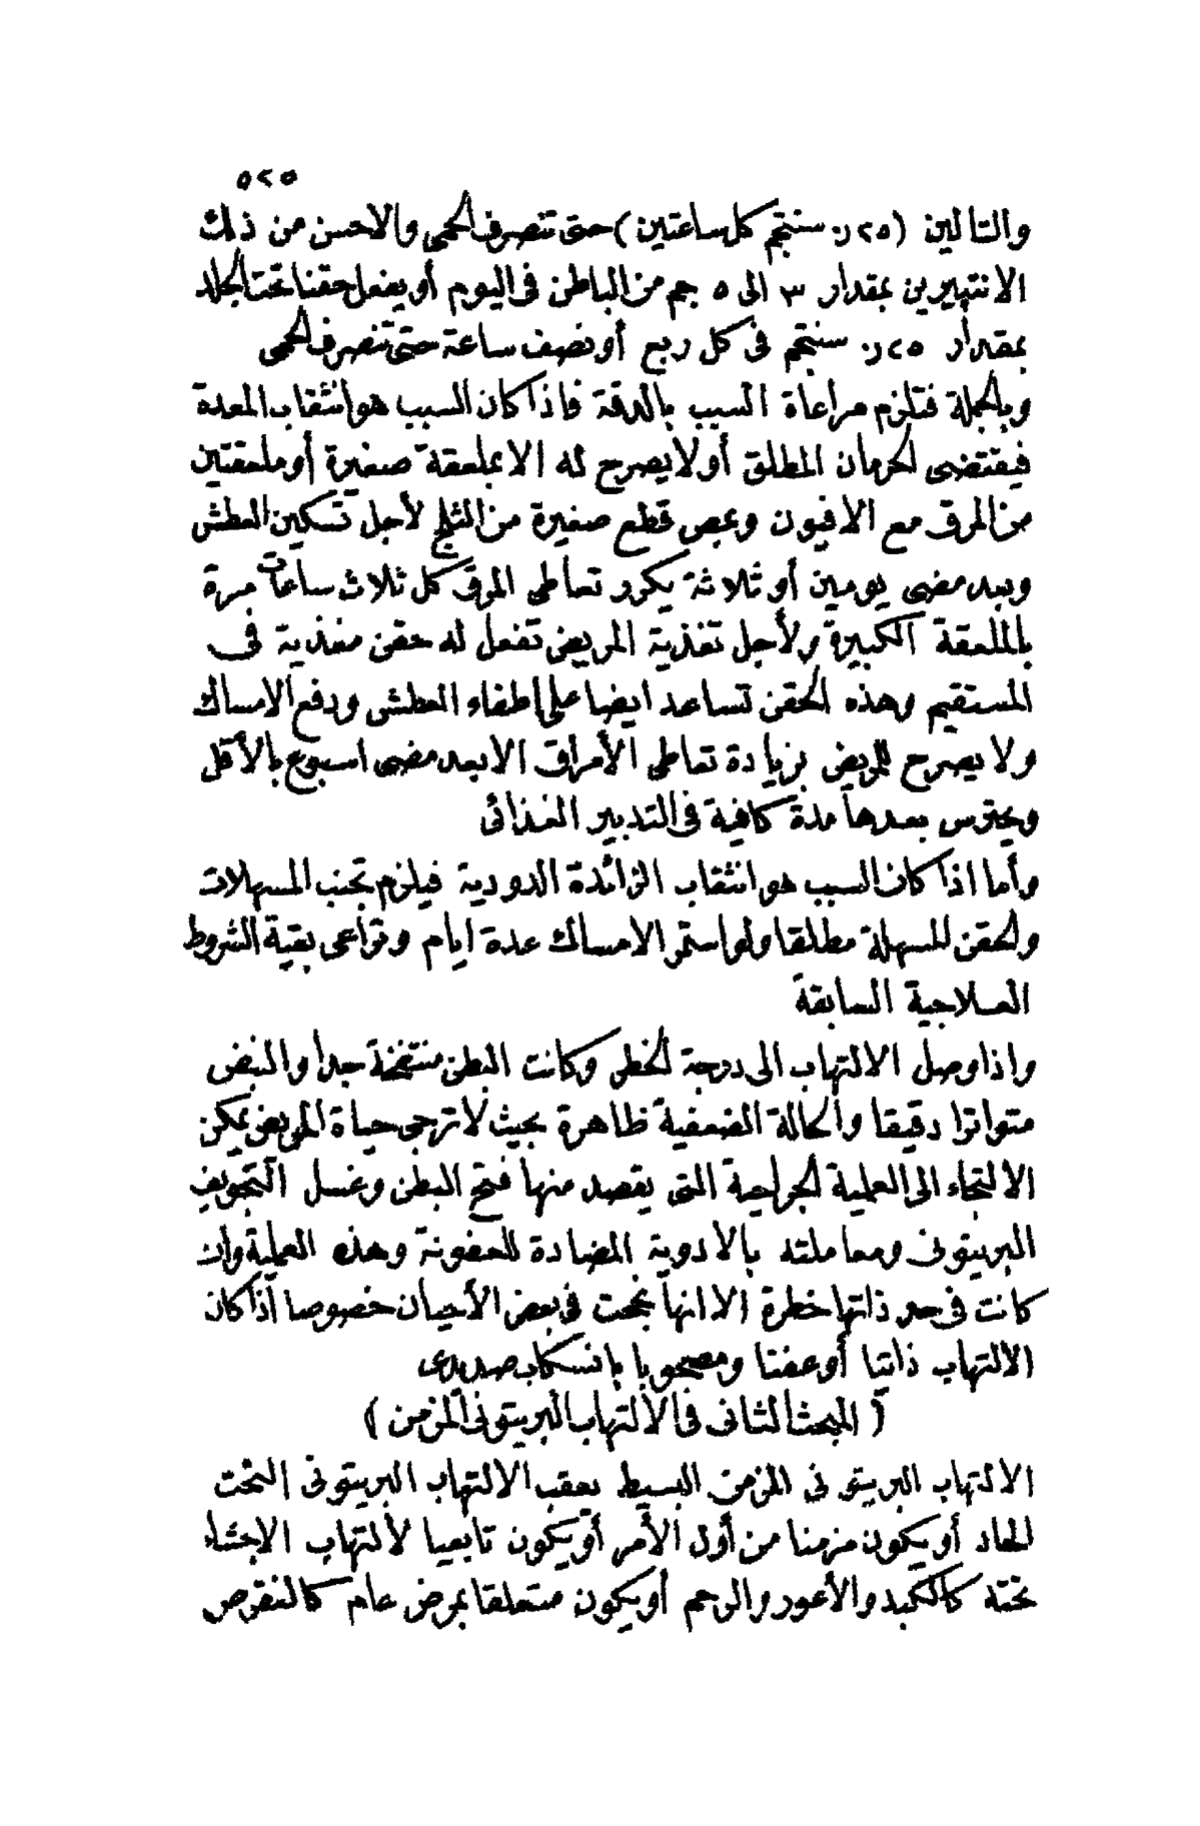 ٥٢٥
والتالين (٢٥ر. سنتجم كل ساعتين) حتى تنصرف الحمى والاحسن من ذلك
الانتيبيرين بمقدار ٣ الى ٥ جم من الباطن فى اليوم أو يفعل حقنا تحت الجلد
بمقدار ٢٥ر. سنتجم فى كل ربع أو نصف ساعة حتى تنصرف الحمى
وبالجملة فتلزم مراعاة السبب بالدقة فاذا كان السبب هو انثقاب المعدة
فيقتضى الحرمان المطلق أو لا يصرح له الا بملعقة صغيرة أو ملعقتين
من المرق مع الافيون وبمص قطع صغيرة من الثلج لأجل تسكين العطش
وبعد مضى يومين أو ثلاثة يكرر تعاطى المرق كل ثلاث ساعات مرة
بالملعقة الكبيرة ولأجل تغذية المريض تفعل له حقن مغذية فى
المستقيم وهذه الحقن تساعد ايضا على اطفاء العطش ودفع الامساك
ولا يصرح للمريض بزيادة تعاطى الأمراق الا بعد مضى اسبوع بالأقل
ويحترس بعدها مدة كافية فى التدبير الغذائى
وأما اذا كان السبب هو انثقاب الزائدة الدودية فيلزم تجنب المسهلات
والحقن المسهلة مطلقا ولو استمر الامساك عدة ايام وتراعى بقية الشروط
العلاجية السابقة
واذا وصل الالتهاب الى درجة الخطر وكانت البطن منتفخة جدا والنبض
متواترا دقيقا والحالة الضعفية ظاهرة بحيث لا ترجى حياة المريض يمكن
الالتجاء الى العملية الجراحية التى يقصد منها فتح البطن وغسل التجويف
البريتونى ومعاملته بالادوية المضادة للعفونة وهذه العملية وان
كانت فى حد ذاتها خطرة الا انها نجحت فى بعض الأحيان خصوصا اذا كان
الالتهاب ذاتيا أو عفنا ومصحوبا بانسكاب صديدى
(المبحث الثانى فى الالتهاب البريتونى المزمن)
الالتهاب البريتونى المزمن البسيط يعقب الالتهاب البريتونى التحت
الحاد أو يكون مزمنا من أول الأمر أو يكون تابعيا لألتهاب الاحشاء
تحته كالكبد والأعور والرحم أو يكون متعلقا بمرض عام كالنقرص